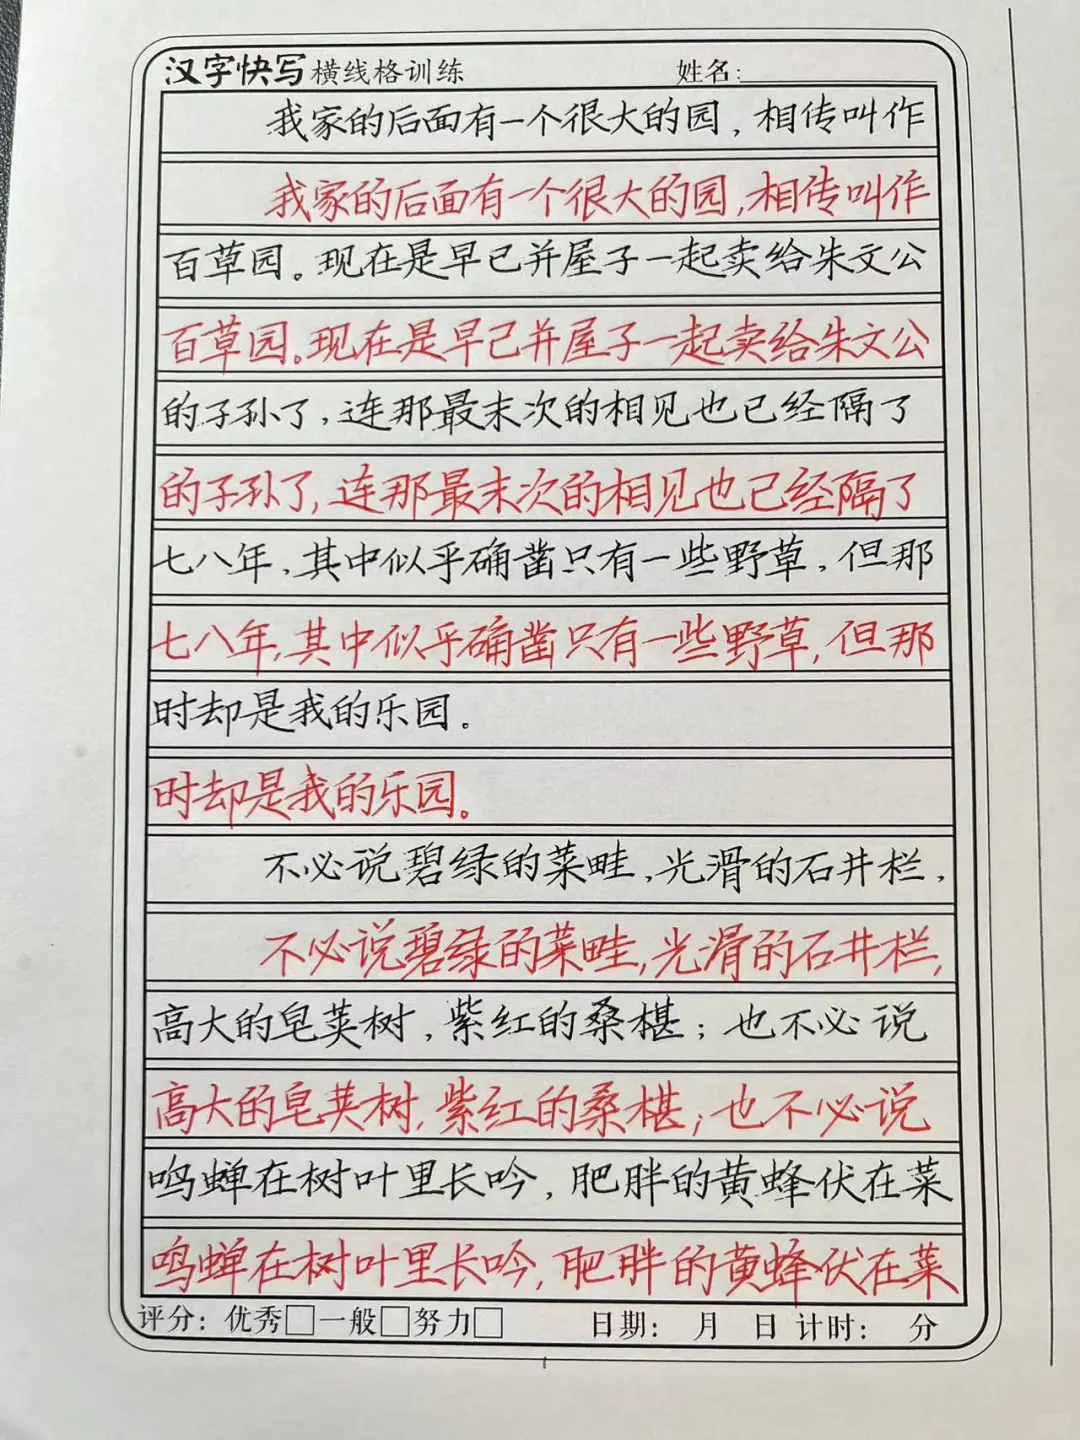 汉字快写横线格训练 姓名:
我家的后面有一个很大的园，相传叫作
我家的后面有一个很大的园，相传叫作
百草园。现在是早已并屋子一起卖给朱文公
百草园。现在是早已并屋子一起卖给朱文公
的子孙了，连那最末次的相见也已经隔了
的子孙了，连那最末次的相见也已经隔了
七八年，其中似乎确凿只有一些野草，但那
七八年，其中似乎确凿只有一些野草，但那
时却是我的乐园。
时却是我的乐园。
不必说碧绿的菜畦，光滑的石井栏，
不必说碧绿的菜畦，光滑的石井栏，
高大的皂荚树，紫红的桑椹；也不必说
高大的皂荚树，紫红的桑椹；也不必说
鸣蝉在树叶里长吟，肥胖的黄蜂伏在菜
鸣蝉在树叶里长吟，肥胖的黄蜂伏在菜
评分：优秀□一般□努力□ 日期： 月 日 计时： 分